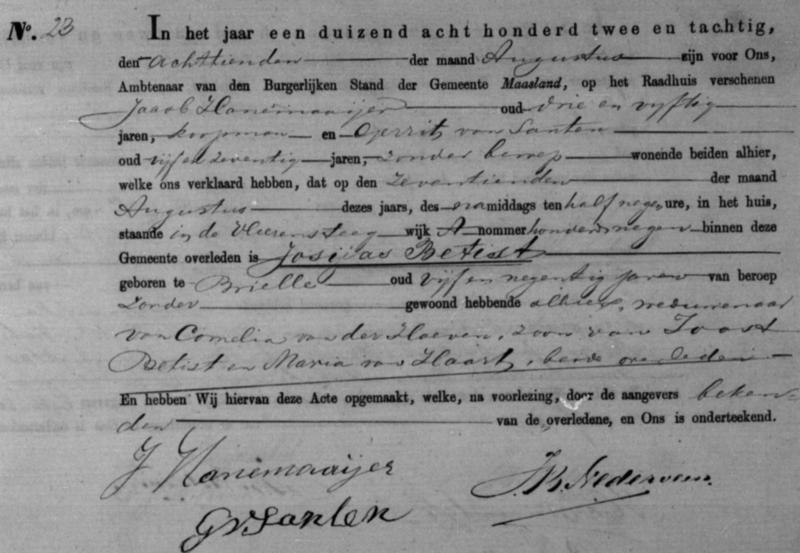 No. 23 In het jaar een duizend acht honderd twee en tachtig,
den achttienden der maand Augustus zijn voor Ons,
Ambtenaar van den Burgerlijken Stand der Gemeente Maasland, op het Raadhuis verschenen
Jacob Hanemaaijer oud drie en vijftig
jaren, koopman en Gerrit van Santen
oud vijf en zeventig jaren, zonder beroep wonende beiden alhier,
welke ons verklaard hebben, dat op den zeventienden der maand
Augustus dezes jaars, des namiddags ten half negen ure, in het huis,
staande in de Vleersensteeg wijk A nommer honderd negen binnen deze
Gemeente overleden is Josijas Betist
geboren te Brielle oud vijf en negentig jaren van beroep
zonder gewoond hebbende alhier, weduwenaar
van Cornelia van der Hoeven, zoon van Joost
Betist en Maria van Haart, beide overleden
En hebben Wij hiervan deze Acte opgemaakt, welke, na voorlezing, door de aangevers beken-
den van de overledene, en Ons is onderteekend.
J Hanemaaijer
GvSanten
Nederveen.